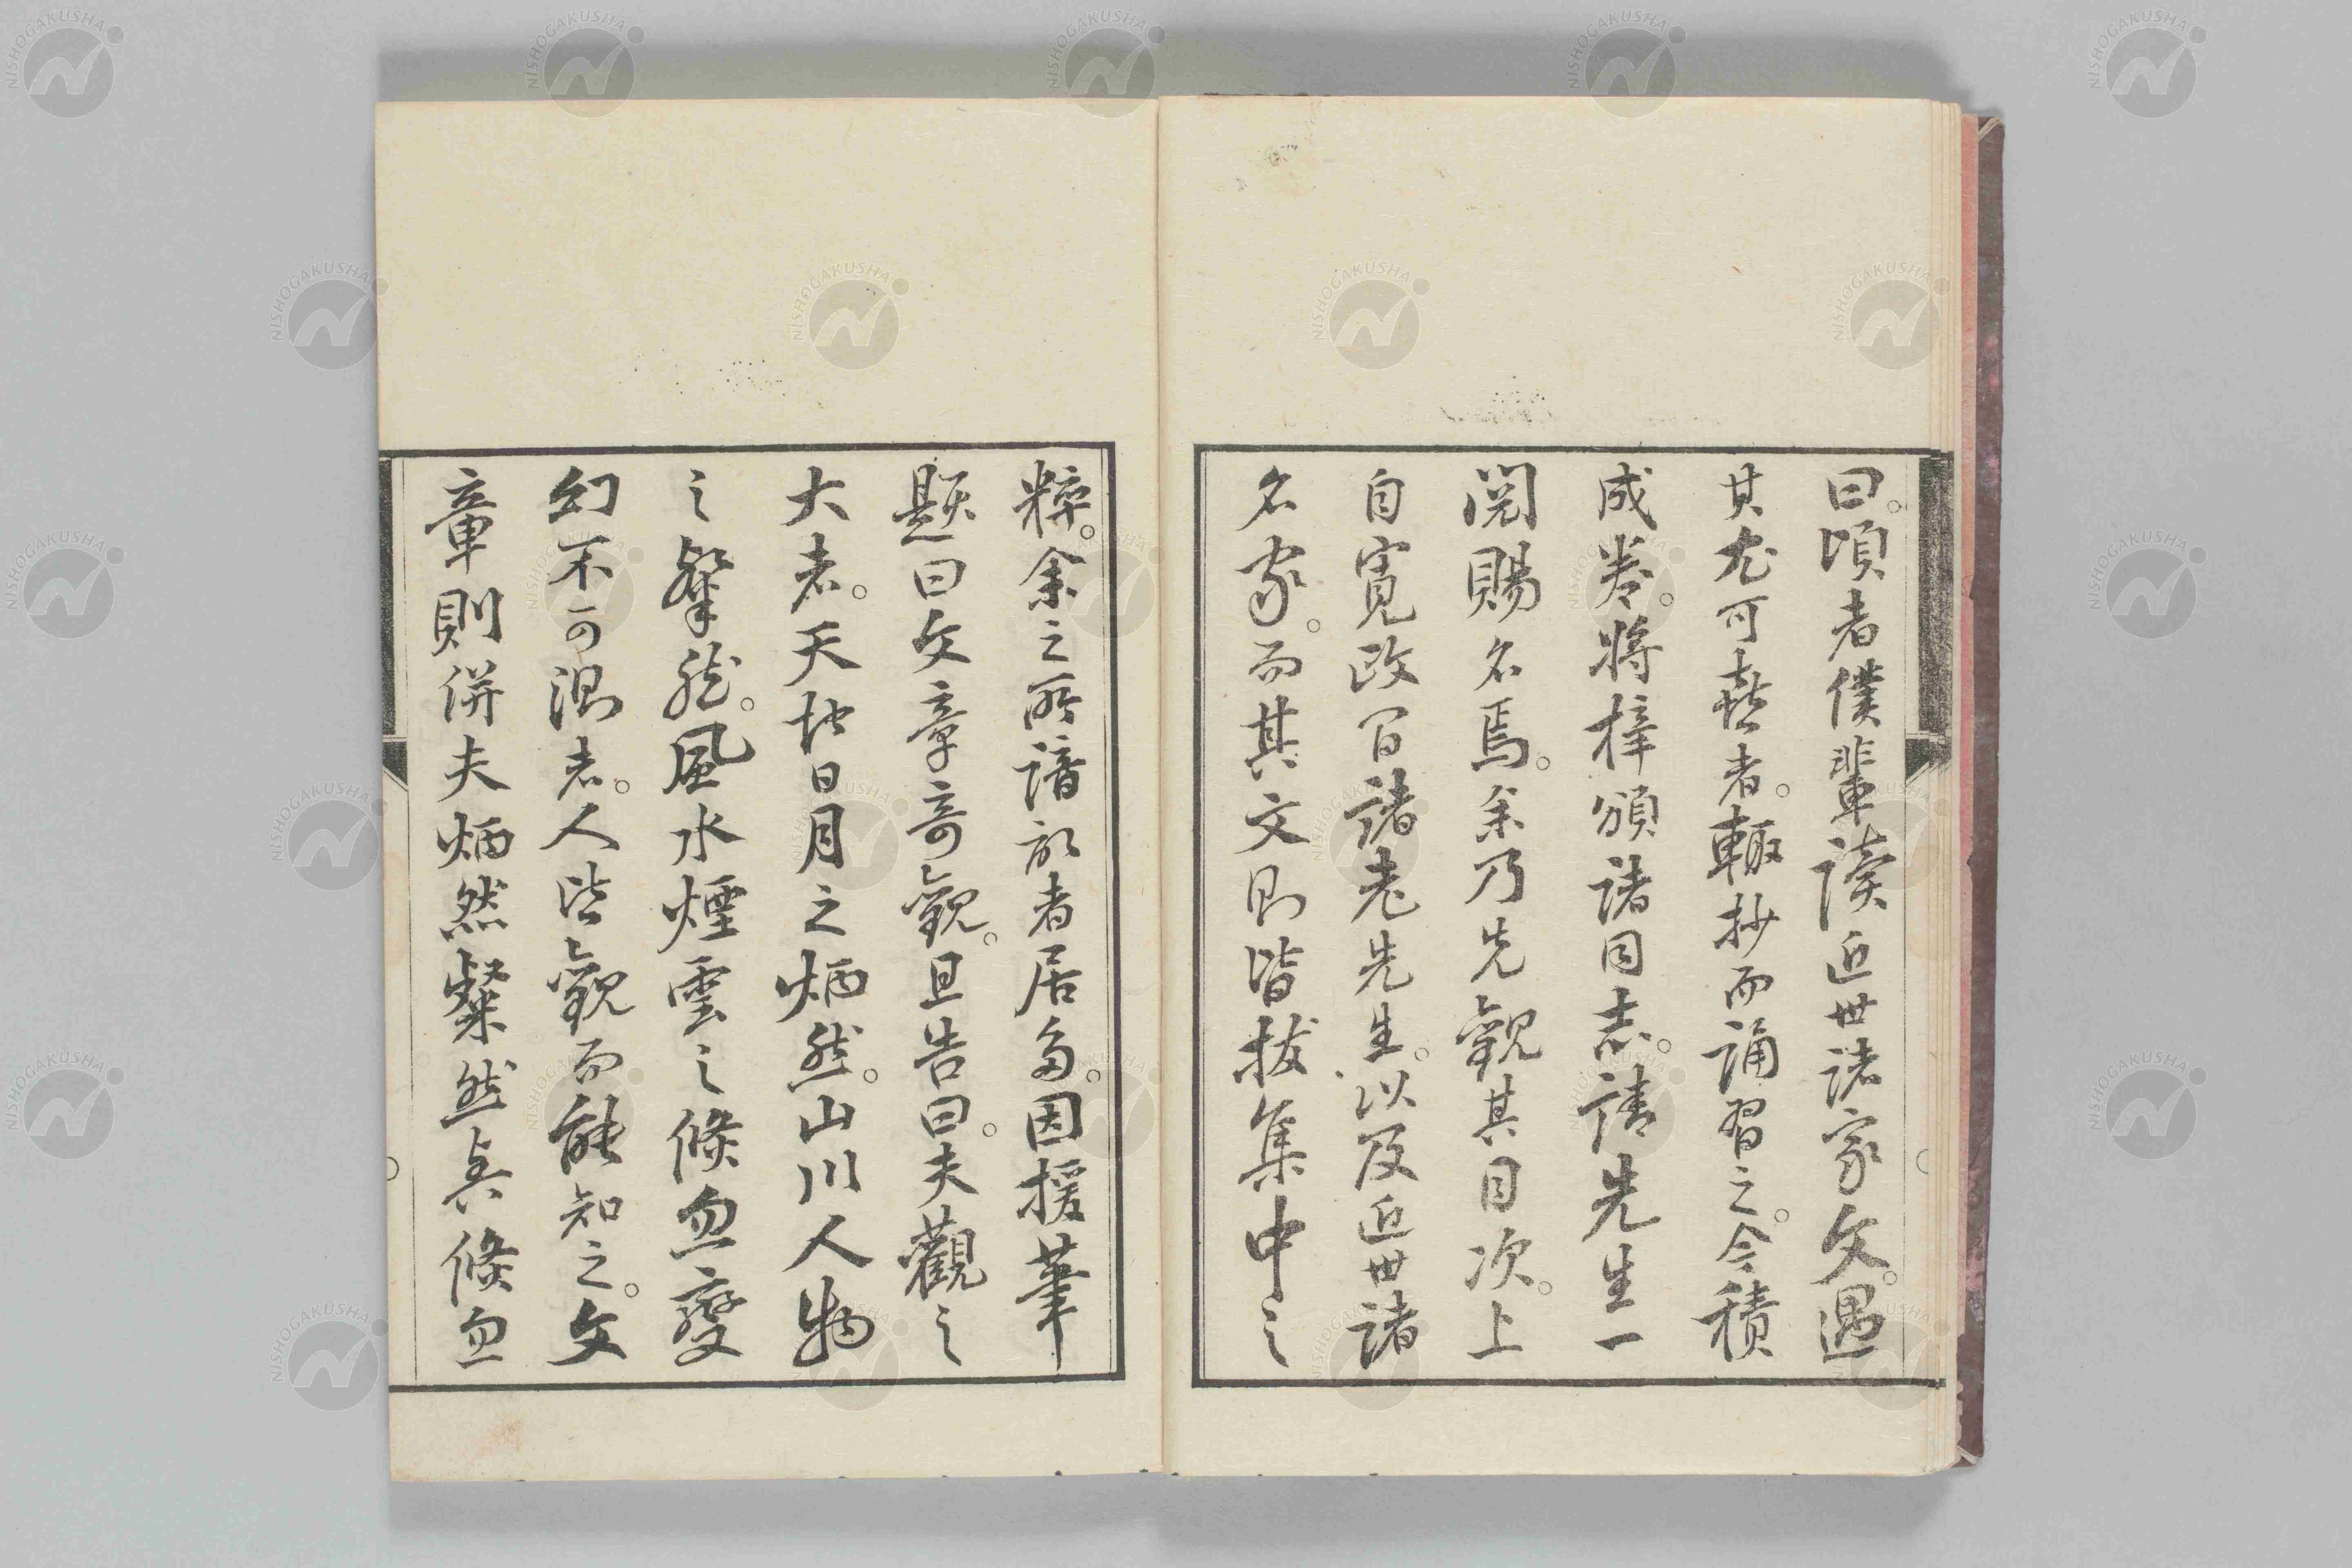 曰。頃者僕輩讀近世諸家文。遇
其尤可喜者。輙抄而誦習之。今積
成卷。將梓頒諸同志。請先生一
閲賜名焉。余乃先觀其目次。上
自寛政百諸老先生。以及近世諸
名家。而其文則皆拔集中之
粹。余之所諳記者居多。因援筆
題曰文章奇觀。且告曰。夫觀之
大者。天地日月之炳然。山川人物
之粲然。風水煙雲之倏忽變
幻不可測者。人皆觀而能知之。文
章則併夫炳然粲然與倏忽
NISHOGAKUSHA